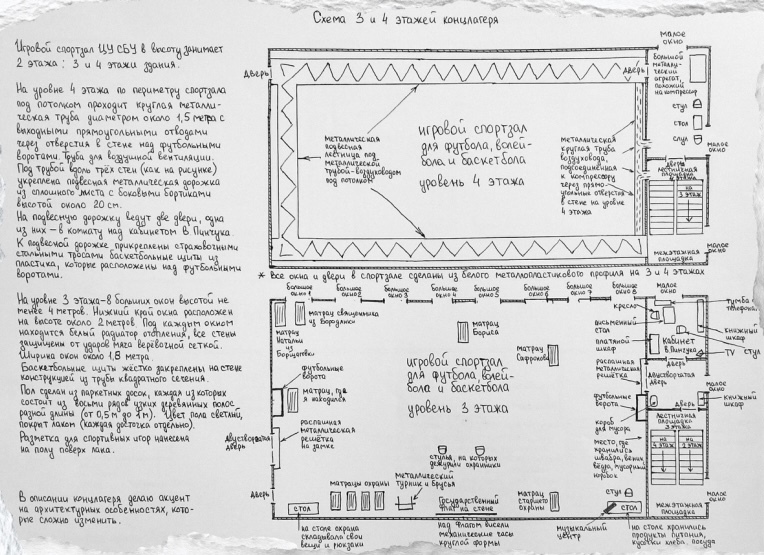 Схема 3 и 4 этажей концлагеря
Игровой спортзал ЦУ СБУ в высоту занимает
2 этажа: 3 и 4 этажи здания.
На уровне 4 этажа по периметру спортзала
под потолком проходит круглая металли-
ческая труба диаметром около 1,5 метра с
выходными прямоугольными отводами
через отверстия в стене над футбольными
воротами. Труба для воздушной вентиляции.
Под трубой вдоль трёх стен (как на рисунке)
укреплена подвесная металлическая дорожка
из сплошного листа с боковыми бортиками
высотой около 20 см.
На подвесную дорожку ведут две двери, одна
из них – в комнату над кабинетом В. Пинчука.
К подвесной дорожке прикреплены страховочными
стальными тросами баскетбольные щиты из
пластика, которые расположены над футбольными
воротами.
На уровне 3 этажа – 8 больших окон высотой не
менее 4 метров. Нижний край окна расположен
на высоте около 2 метров. Под каждым окном
находится белый радиатор отопления, все стены
защищены от ударов мяча верёвочной сеткой.
Ширина окон около 1,8 метра.
Баскетбольные щиты жёстко закреплены на стене
конструкцией из трубы квадратного сечения.
Пол сделан из паркетных досок, каждая из которых
состоит из восьми рядов узких деревянных полос
разной длины (от 0,5 м до 1 м). Цвет пола светлый,
покрыт лаком (каждая досточка отдельно).
Разметка для спортивных игор нанесена
на полу поверх лака.
В описании концлагеря делаю акцент
на архитектурных особенностях, кото-
рые сложно изменить.
дверь
дверь
металлическая
подвесная
лестница под
металлической
трубой-воздуховодом
под потолком
игровой спортзал
для футбола, волей-
бола и баскетбола
уровень 4 этажа
металлическая
круглая труба
воздуховода,
подсоединённая
к компрессору
через прямо-
угольные отверстия
в стене на уровне
4 этажа
малое
окно
большой
металли-
ческий
агрегат,
похожий
на компрессор
стул
стол
стул
малое
окно
дверь
лестничная
площадка
на
3 этаж
межэтажная
площадка
малое
окно
* Все окна и двери в спортзале сделаны из белого металлопластикового профиля на 3 и 4 этажах
большое
окно 1
большое
окно 2
большое
окно 3
большое
окно 4
большое
окно 5
большое
окно 6
большое
окно 7
большое
окно 8
малое
окно
матрац
Натальи
из
Борщаговки
матрац священника
из Бородянки
матрац
Бориса
матрац
Сафронова
футбольные
ворота
матрац, где
я находился
игровой спортзал
для футбола, волей-
бола и баскетбола
уровень 3 этажа
распашная
металлическая
решётка
на замке
двустворчатая
дверь
дверь
стол
на столе охрана
складывала свои
вещи и рюкзаки
матрацы охраны
металлический
турник и брусья
стулья, на которых
дежурили охранники
Государственный
флаг на стене
над флагом висели
механические часы
круглой формы
матрац
старшего
охраны
музыкальный
центр
стул
стол
на столе хранились
продукты питания,
куски хлеба, посуда
кресло
письменный
стол
платяной
шкаф
кабинет
В. Пинчука
тумба с
телефоном
книжный
шкаф
TV
стул
дверь
распашная
металлическая
решётка
двустворчатая
дверь
футбольные
ворота
короб
для мусора
место, где
хранились
швабра, веник,
вёдра, мусорный
коробок
малое
окно
книжный
шкаф
лестничная
площадка
3 этажа
на
4 этаж
на
2 этаж
межэтажная
площадка
малое
окно